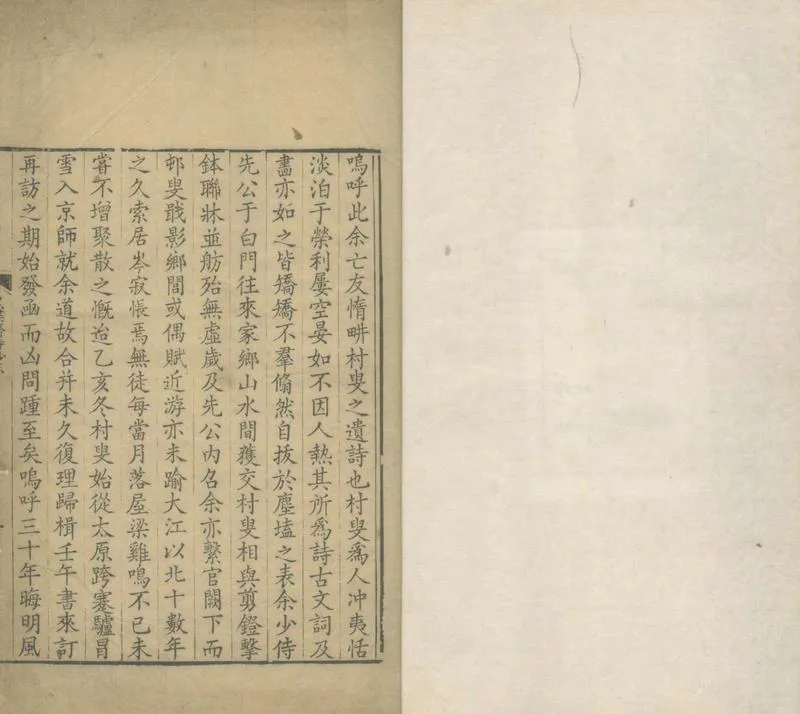 嗚呼此余亡友惰畊村叟之遺詩也村叟爲人冲夷恬
淡泊于榮利屢空晏如不因人熱其所爲詩古文詞及
畵亦如之皆矯矯不羣翛然自拔於塵壒之表余少侍
先公于白門往來家鄉山水間獲交村叟相與剪鐙擊
鉢聯牀並舫殆無虛歲及先公內名余亦繫官闕下而
邨叟戢影鄉閭或偶賦近游亦未踰大江以北十數年
之久索居岑寂悵焉無徒每當月落屋梁雞鳴不已未
嘗不增聚散之慨迨乙亥冬村叟始從太原跨蹇驢冒
雪入京師就余道故合并未久復理歸楫壬午書來訂
再訪之期始發函而凶問踵至矣嗚呼三十年晦明風